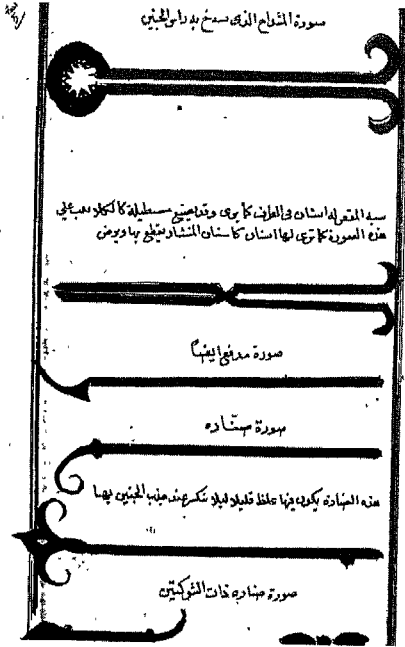 صورة المشداخ الذى يشدخ به راس الجنين
شبه المقص له اسنان فى الطرف كما ترى وقد يصنع مستطيلة كالكلاليب على
هذه الصورة كما ترى لها اسنان كاسنان المنشار يقطع بها ويرض
صورة مدفع ايضا
صورة صنّاره
هذه الصنارة يكون فيها غلظ قليلا ليلا تنكسر عند جذب الجنين بها
صورة صناره ذات الشوكتين